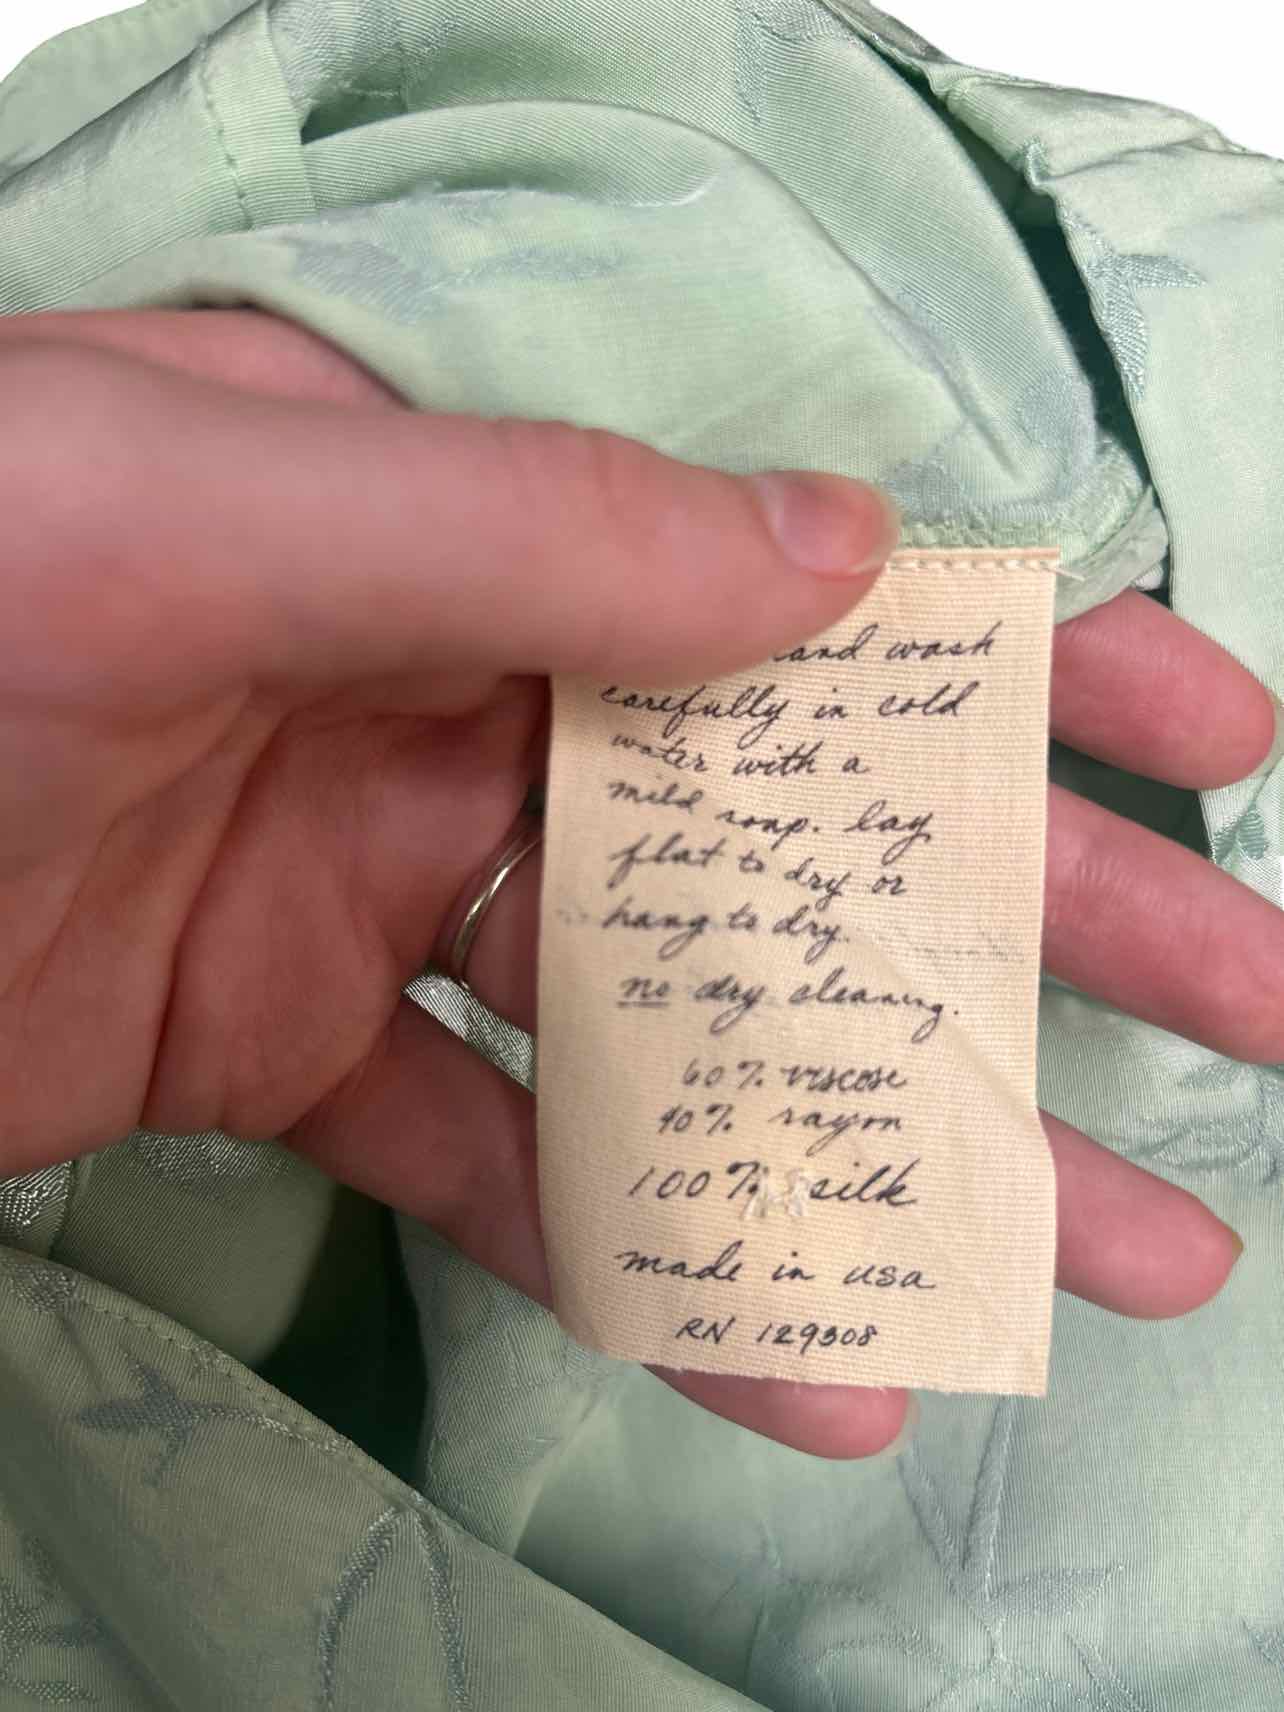 hand wash
carefully in cold
water with a
mild soap. lay
flat to dry or
hang to dry.
no dry cleaning.
60% viscose
40% rayon
100% silk
made in usa
RN 129308